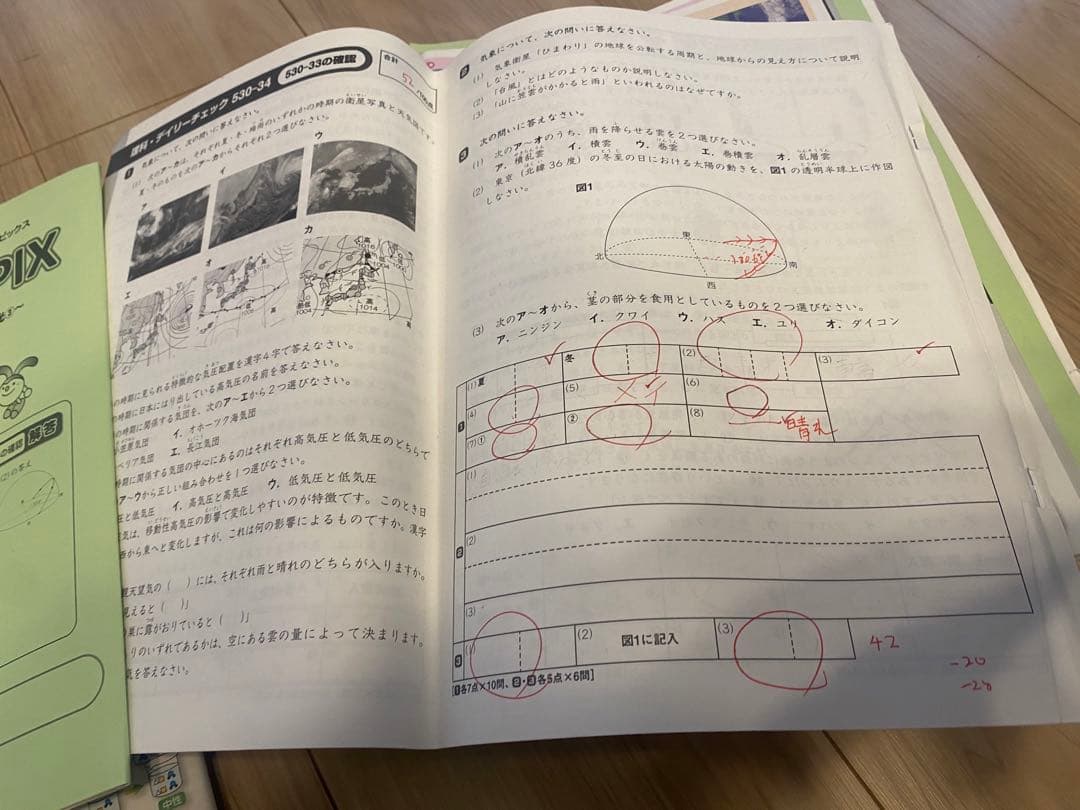 ピックス
PIX
解答
(2)の答え
中性
理科・デイリーチェック 530-34
530-33の確認
合計
52
/100点
1 気象について、次の問いに答えなさい。
(1) 次のア〜カは、それぞれ夏・冬・梅雨のいずれかの時期の衛星写真と天気図です。
夏・冬のものを次のア〜カからそれぞれ2つ選びなさい。
ア
イ
ウ
エ
オ
カ
高
1016
低
1004
高
1014
の時期に見られる特徴的な気圧配置を漢字4字で答えなさい。
の時期に日本にはり出している高気圧の名前を答えなさい。
の時期に関係する気団を、次のア〜エから2つ選びなさい。
小笠原気団 イ．オホーツク海気団
ベリア気団 エ．長江気団
時期に関係する気団の中心にあるのはそれぞれ高気圧と低気圧のどちらで
ア〜ウから正しい組み合わせを1つ選びなさい。
圧と低気圧 イ．高気圧と高気圧 ウ．低気圧と低気圧
天気は、移動性高気圧の影響で変化しやすいのが特徴です。このとき日
西から東へと変化しますが、これは何の影響によるものですか。漢字
観天望気の（ ）には、それぞれ雨と晴れのどちらが入りますか。
見えると（ ）」
の巣に露がおりていると（ ）」
りのいずれであるかは、空にある雲の量によって決まります。
気を答えなさい。
2 気象について、次の問いに答えなさい。
(1) 気象衛星（ひまわり）の地球を公転する周期と、地球からの見え方について説明
しなさい。
(2) 「台風」とはどのようなものか説明しなさい。
(3) 「山に笠雲がかかると雨」といわれるのはなぜですか。
3 次の問いに答えなさい。
(1) 次のア〜オのうち、雨を降らせる雲を2つ選びなさい。
ア．積乱雲 イ．積雲 ウ．巻雲 エ．巻積雲 オ．乱層雲
(2) 東京（北緯36度）の冬至の日における太陽の動きを、図1の透明半球上に作図
しなさい。
図1
東
北
南
西
(3) 次のア〜オから、茎の部分を食用としているものを2つ選びなさい。
ア．ニンジン イ．クワイ ウ．ハス エ．ユリ オ．ダイコン
1
(1)夏
冬
(2)
(3)
(4)
(5)
(6)
(7)①
②
(8)
晴れ
2
(1)
(2)
(3)
3
(1)
(2)
図1に記入
(3)
42
-20
-28
[1各7点×10問、2・3各5点×6問]